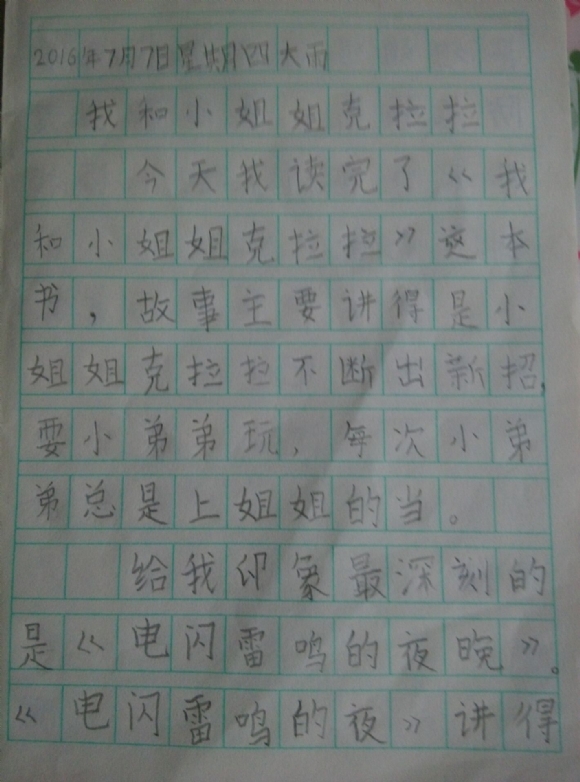 2016年7月7日星期四大雨
我和小姐姐克拉拉
今天我读完了《我
和小姐姐克拉拉》这本
书，故事主要讲得是小
姐姐克拉拉不断出新招，
耍小弟弟玩，每次小弟
弟总是上姐姐的当。
给我印象最深刻的
是《电闪雷鸣的夜晚》。
《电闪雷鸣的夜》讲得